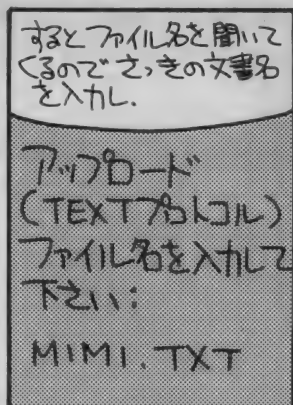 するとファイル名を聞いて
くるのでさっきの文書名
を入力し.
アップロード
(TEXTプロトコル)
ファイル名を入力して
下さい:
MIMI.TXT